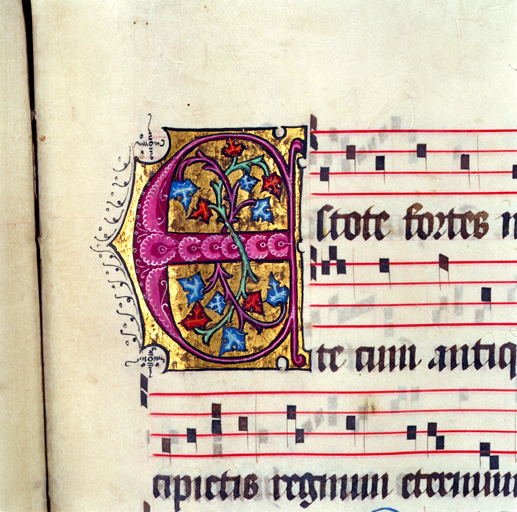 Estote fortes
te cum antiq
cipietis regnum eternum